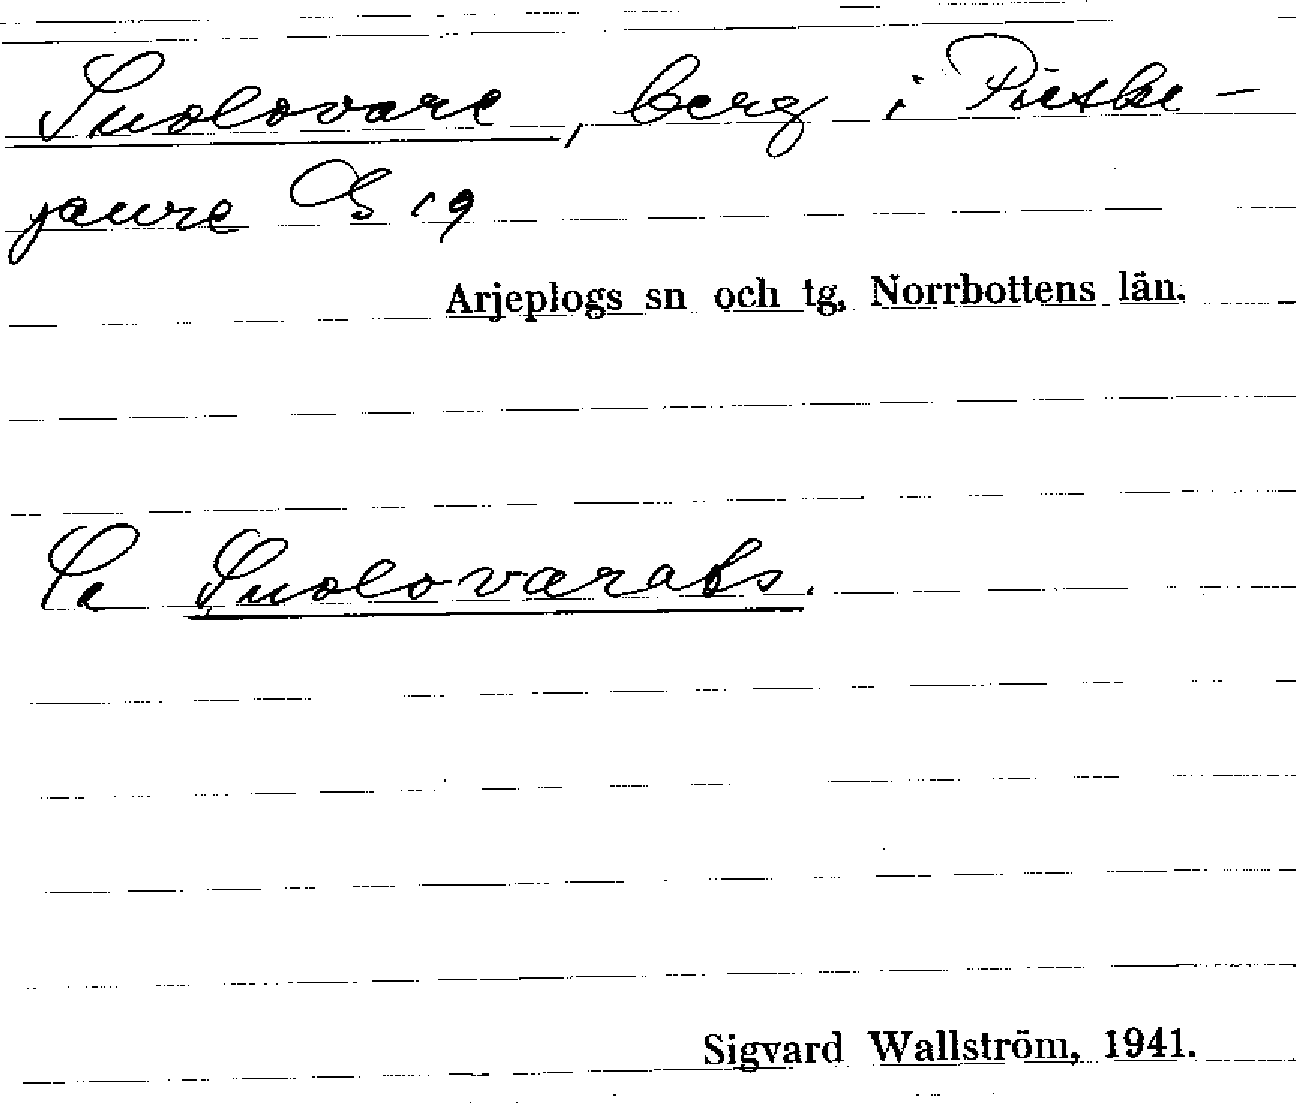 Suolovare, berg i Pieske-
jaure GS 19
Arjeplogs sn och tg, Norrbottens län.
Se Suolovarats.
Sigvard Wallström, 1941.